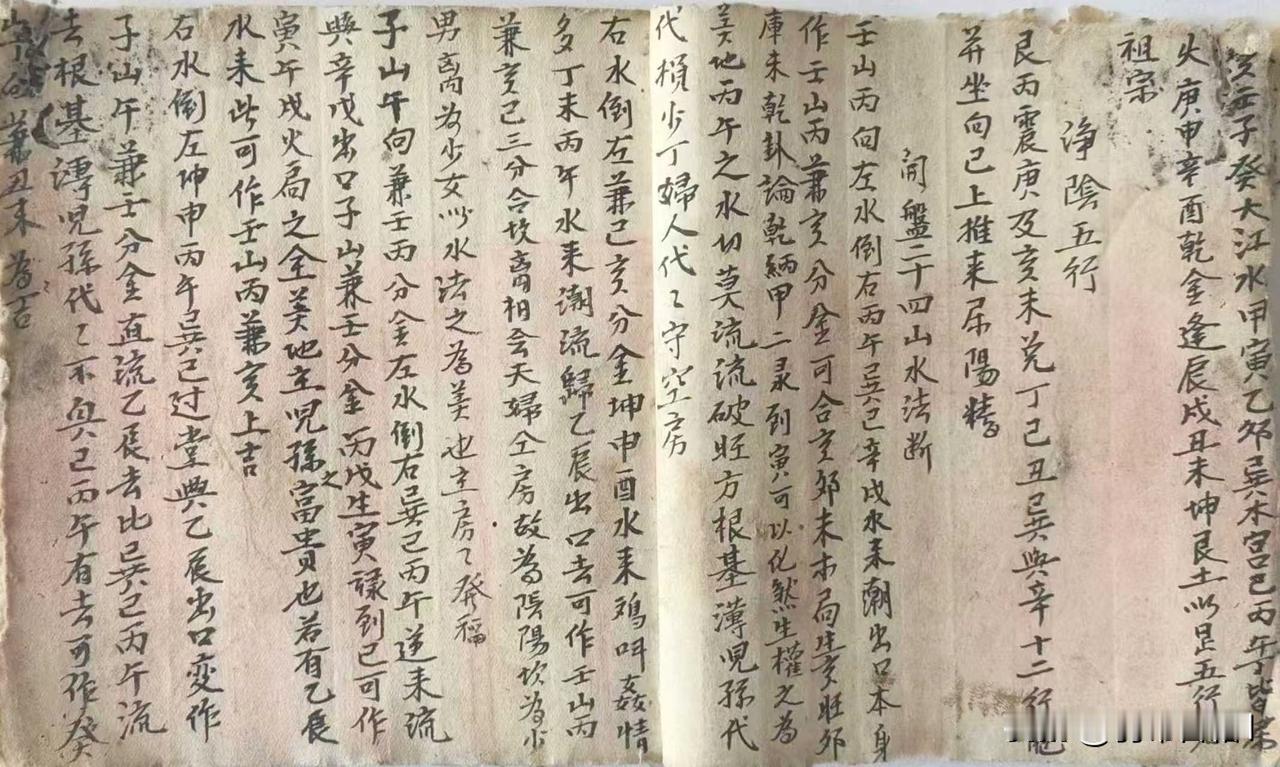 亥壬子癸大江水甲寅乙卯巽木宫巳丙午丁皆属
火庚申辛酉乾金逢辰戌丑未坤艮土以是五行
祖宗
净陰五行
艮丙震庚及亥未兑丁巳丑巳巽與辛十二行龍
并坐向已上推来属陽精
開盤二十四山水法断
壬山丙向左水倒右丙午巽巳辛戌水来潮出口本身
作壬山丙兼亥分金可合亥卯未木局生亥旺卯
庫未乾卦論乾納甲二录到寅可以化煞生權之为
美地丙午之水切莫流流破旺方根基薄児孫代
代損少丁婦人代々守空房
右水倒左兼巳亥分金坤申酉水来鸡叫姦情
多丁未丙午水来潮流歸乙辰出口去可作壬山丙
兼亥巳三分合坎离相会夫婦仝房故為陰陽坎為少
男离为少女以水法之為美地主房々癸福
子山午向兼壬丙分金左水倒右巽巳丙午逆来流
與辛戌出口子山兼壬分金丙戊生寅禄到巳可作
寅午戌火局之金美地主児孫之富贵也若有乙辰
水来此可作壬山丙兼亥上吉
右水倒左坤申丙午巽巳过堂與乙辰出口变作
子山午兼壬分金直流乙辰去比巽巳丙午流
去根基薄児孫代々不 巽巳丙午有去可作癸
兼丑未為吉